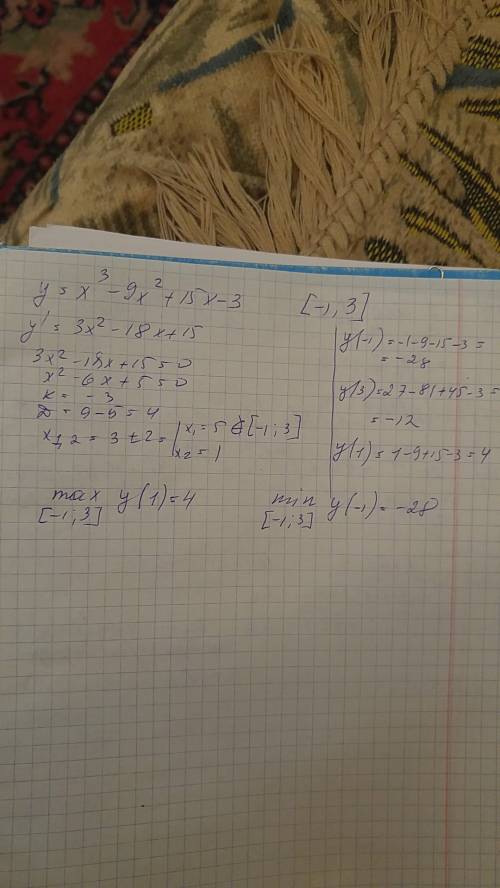 y = x³ - 9x² + 15x - 3 [-1, 3]
y' = 3x² - 18x + 15
3x² - 18x + 15 = 0
x² - 6x + 5 = 0
k = -3
D = 9 - 5 = 4
x₁,₂ = 3 ± 2 = x₁ = 5 ∉ [-1; 3]
x₂ = 1
y(-1) = -1-9-15-3 =
= -28
y(3) = 27-81+45-3 =
= -12
y(1) = 1-9+15-3 = 4
max y(1) = 4
[-1; 3]
min y(-1) = -28
[-1; 3]